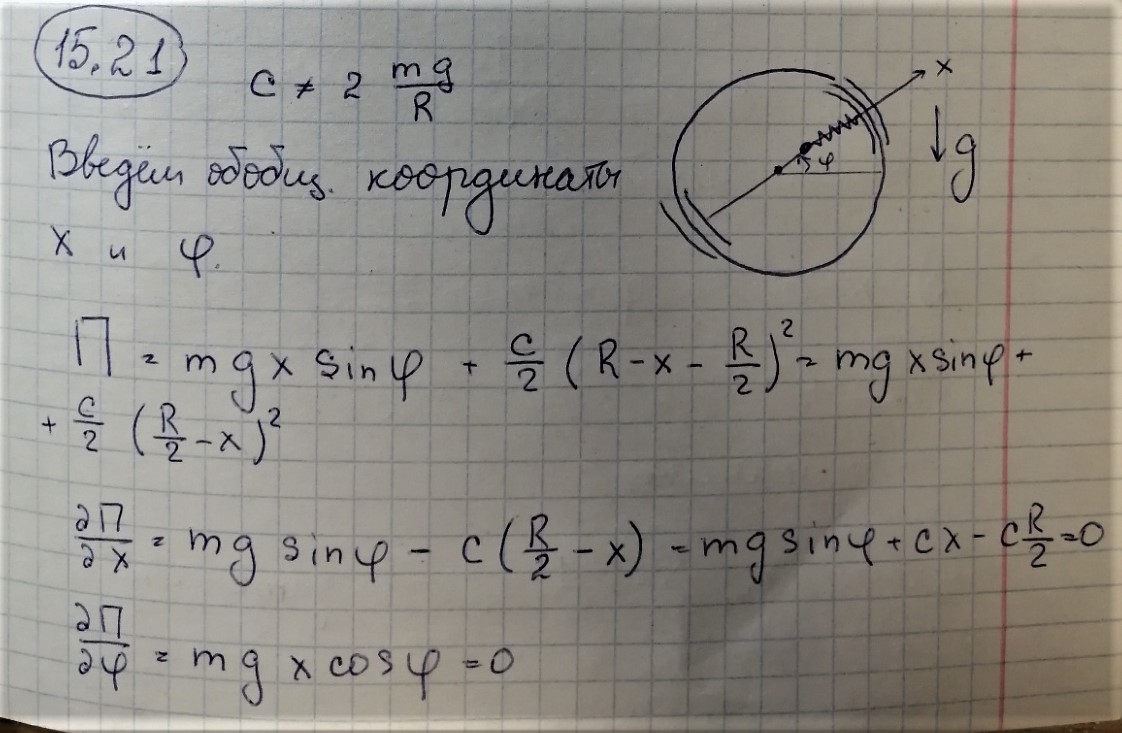 15.21
c ≠ 2 mg/R
Введём обобщ. координаты
x и φ.
x
φ
g
П = mgx sinφ + c/2 (R - x - R/2)² = mgx sinφ +
+ c/2 (R/2 - x)²
∂П/∂x = mg sinφ - c(R/2 - x) = mg sinφ + cx - cR/2 = 0
∂П/∂φ = mg x cosφ = 0